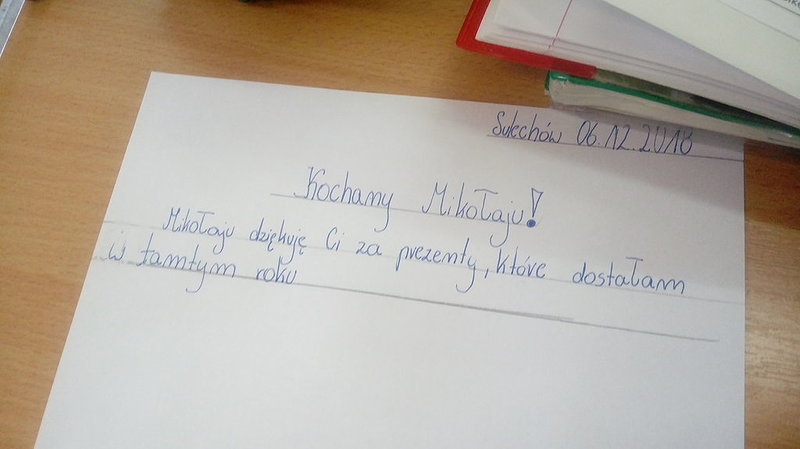 Sulechów 06.12.2018
Kochamy Mikołaju!
Mikołaju dziękuję Ci za prezemty, które dostałam
w tamtym roku